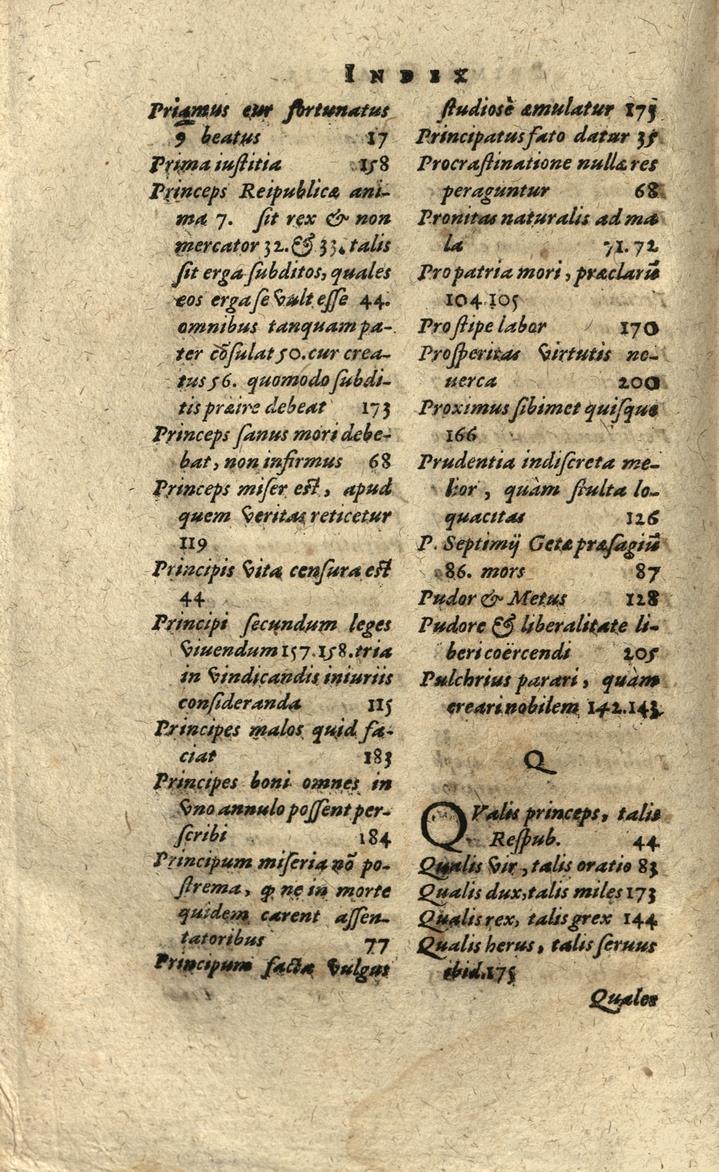 INDEX
Priamus cur fortunatus
& beatus 17
Prima iuſtitia 158
Princeps Reipublicæ ani-
ma 7. ſit rex & non
mercator 32. & 33. talis
ſit erga ſubditos, quales
eos erga ſe vult eſſe 44.
omnibus tanquam pa-
ter cõſulat 50. cur crea-
tus 56. quomodo ſubdi-
tis præire debeat 173
Princeps ſanus mori debe-
bat, non infirmus 68
Princeps miſer eſt, apud
quem veritas reticetur
119
Principis vita cenſura eſt
44
Principi ſecundum leges
viuendum 157.158. tria
in vindicandis iniuriis
conſideranda 115
Principes malos quid fa-
ciat 183
Principes boni omnes in
vno annulo poſſent per-
ſcribi 184
Principum miſeria nõ po-
ſtrema, ꝙ ne in morte
quidem carent aſſen-
tatoribus 77
Principum facta vulgus
ſtudioſè æmulatur 175
Principatus fato datur 35
Procraſtinatione nullæ res
peraguntur 68
Pronitas naturalis ad ma
la 71.72
Pro patria mori, præclarũ
104.105
Pro ſtipe labor 170
Proſperitas virtutis no-
uerca 200
Proximus ſibimet quiſque
166
Prudentia indiſcreta me-
lior, quàm ſtulta lo-
quacitas 126
P. Septimij Getæ præſagiũ
86. mors 87
Pudor & Metus 128
Pudore & liberalitate li-
beri coërcendi 205
Pulchrius parari, quàm
creari nobilem 142.143.
Q
QValis princeps, talis
Reſpub. 44
Qualis vir, talis oratio 83
Qualis dux, talis miles 173
Qualis rex, talis grex 144
Qualis herus, talis ſeruus
ibid. 175
Quales